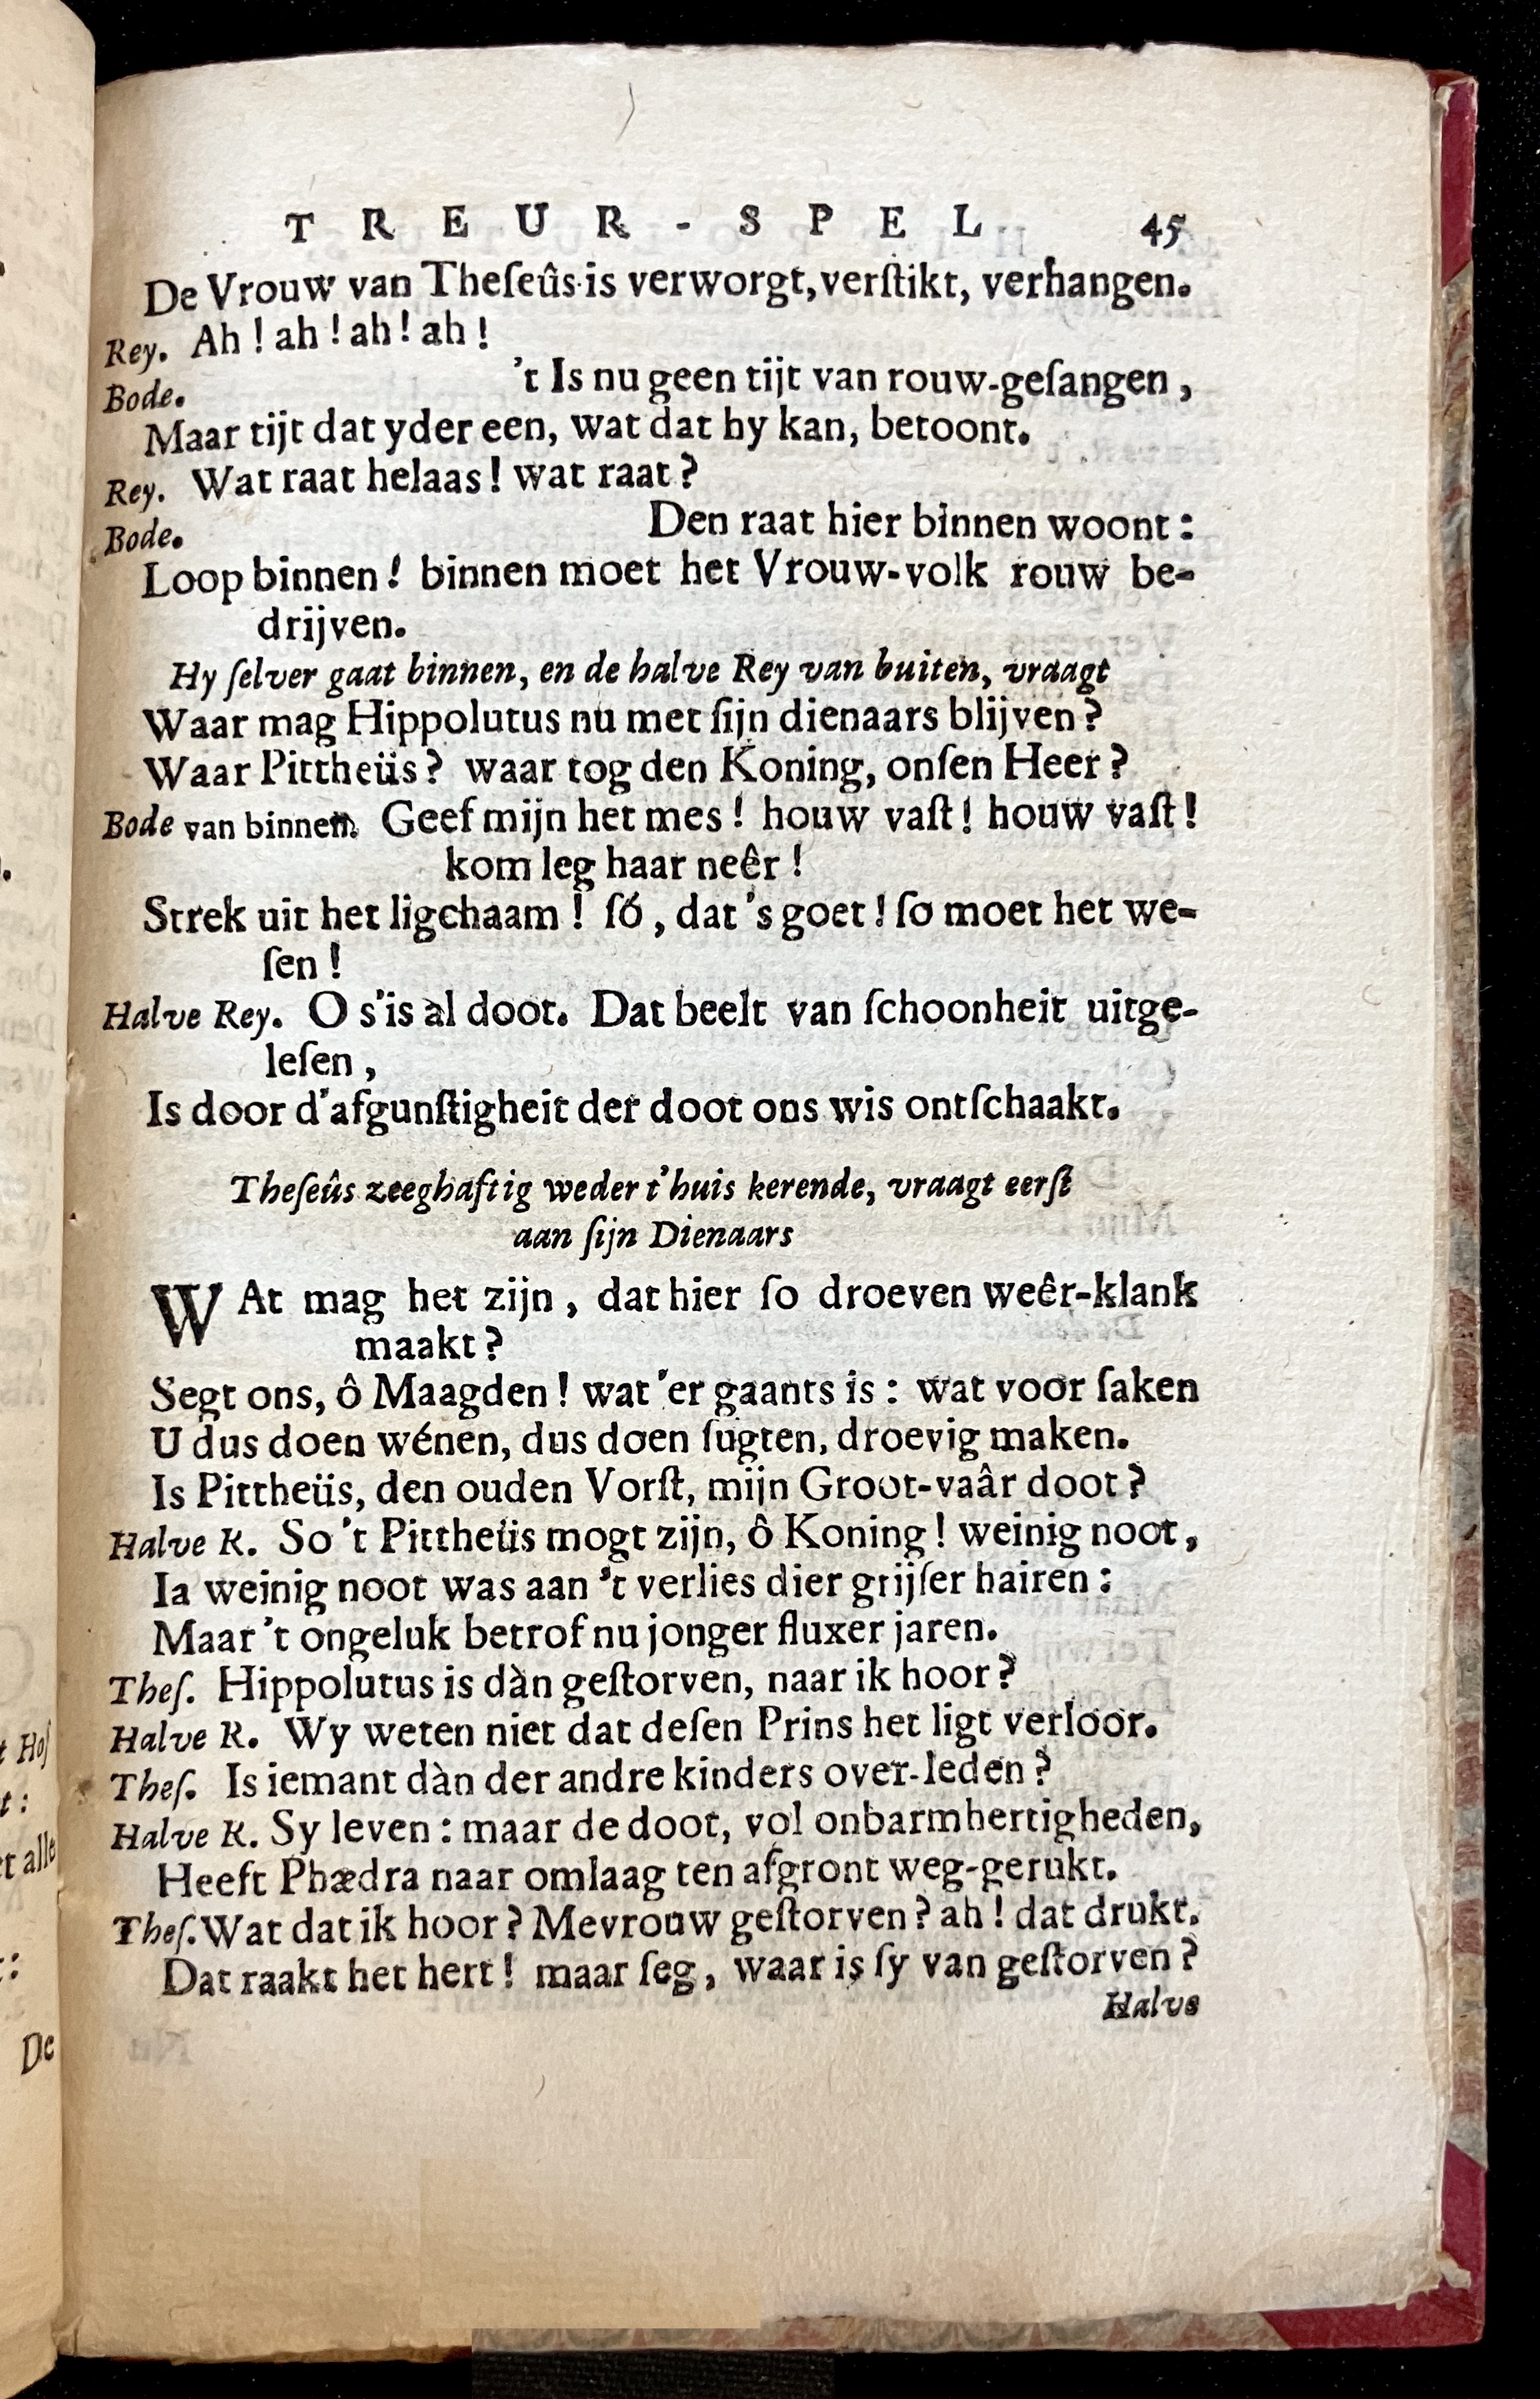 TREUR-SPEL. 45
De Vrouw van Theſeûs is verworgt, verſtikt, verhangen.
Rey. Ah! ah! ah! ah!
Bode. 't Is nu geen tijt van rouw-geſangen,
Maar tijt dat yder een, wat dat hy kan, betoont.
Rey. Wat raat helaas! wat raat?
Bode. Den raat hier binnen woont:
Loop binnen! binnen moet het Vrouw-volk rouw be-
drijven.
Hy ſelver gaat binnen, en de halve Rey van buiten, vraagt
Waar mag Hippolutus nu met ſijn dienaars blijven?
Waar Pittheüs? waar tog den Koning, onſen Heer?
Bode van binnen. Geef mijn het mes! houw vaſt! houw vaſt!
kom leg haar neêr!
Strek uit het ligchaam! ſó, dat 's goet! ſo moet het we-
ſen!
Halve Rey. O s'is al doot. Dat beelt van ſchoonheit uitge-
leſen,
Is door d'afgunſtigheit der doot ons wis ontſchaakt.
Theſeûs zeeghaftig weder t'huis kerende, vraagt eerſt
aan ſijn Dienaars
WAt mag het zijn, dat hier ſo droeven weêr-klank
maakt?
Segt ons, ô Maagden! wat 'er gaants is: wat voor ſaken
U dus doen wénen, dus doen ſugten, droevig maken.
Is Pittheüs, den ouden Vorſt, mijn Groot-vaâr doot?
Halve R. So 't Pittheüs mogt zijn, ô Koning! weinig noot,
Ia weinig noot was aan 't verlies dier grijſer hairen:
Maar 't ongeluk betrof nu jonger fluxer jaren.
Theſ. Hippolutus is dàn geſtorven, naar ik hoor?
Halve R. Wy weten niet dat deſen Prins het ligt verloor.
Theſ. Is iemant dàn der andre kinders over-leden?
Halve R. Sy leven: maar de doot, vol onbarmhertigheden,
Heeft Phædra naar omlaag ten afgront weg-gerukt.
Theſ. Wat dat ik hoor? Mevrouw geſtorven? ah! dat drukt.
Dat raakt het hert! maar ſeg, waar is ſy van geſtorven?
Halve